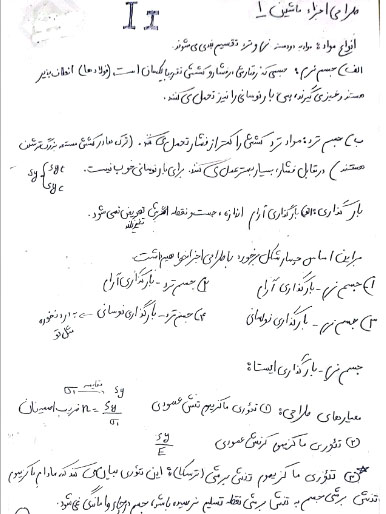 طراحی اجزاء ماشین 1
II
انواع مواد: مواد به دو دسته نرم و ترد تقسیم بندی می شوند.
الف) جسم نرم: جسمی که رفتارش در فشار و کششی تقریبا یکسان است (فولادها) انعطاف پذیر
هستند و ضربه می گیرند، یعنی بار نوسانی را نیز تحمل می کنند.
ب) جسم ترد: مواد ترد کششی را کمتر از فشار تحمل می کنند. (ترک ها در کششی مستعد بزرگتر شدن
هستند) در مقابل فشار، بسیار بهتر عمل می کنند. برای بار نوسانی خوب نیست.
Sy { Syt
Syc
بارگذاری: الف) بارگذاری آرام اندازه، جهت و نقطه اثرش تغییر نمی شود.
بر این اساس چهار شکل برخورد با طراحی اجزا خواهیم داشت
1) جسم نرم - بارگذاری آرام 2) جسم ترد - بارگذاری آرام
3) جسم نرم - بارگذاری نوسانی 4) جسم ترد - بارگذاری نوسانی
جسم نرم - بارگذاری ایستا:
معیارهای طراحی: 1) تئوری ماکزیمم تنش عمودی σ1 مقایسه Sy n = Sy/σ1 ضریب اطمینان
2) تئوری ماکزیمم کرنش عمودی Sy/E
3) تئوری ماکزیمم تنش برشی (ترسکا): این تئوری بیان می کند که مادام ماکزیمم
تنش برشی جسم به تنش برشی نقطه تسلیم نرسیده باشد، جسم دچار وا ماندگی نمی شود.